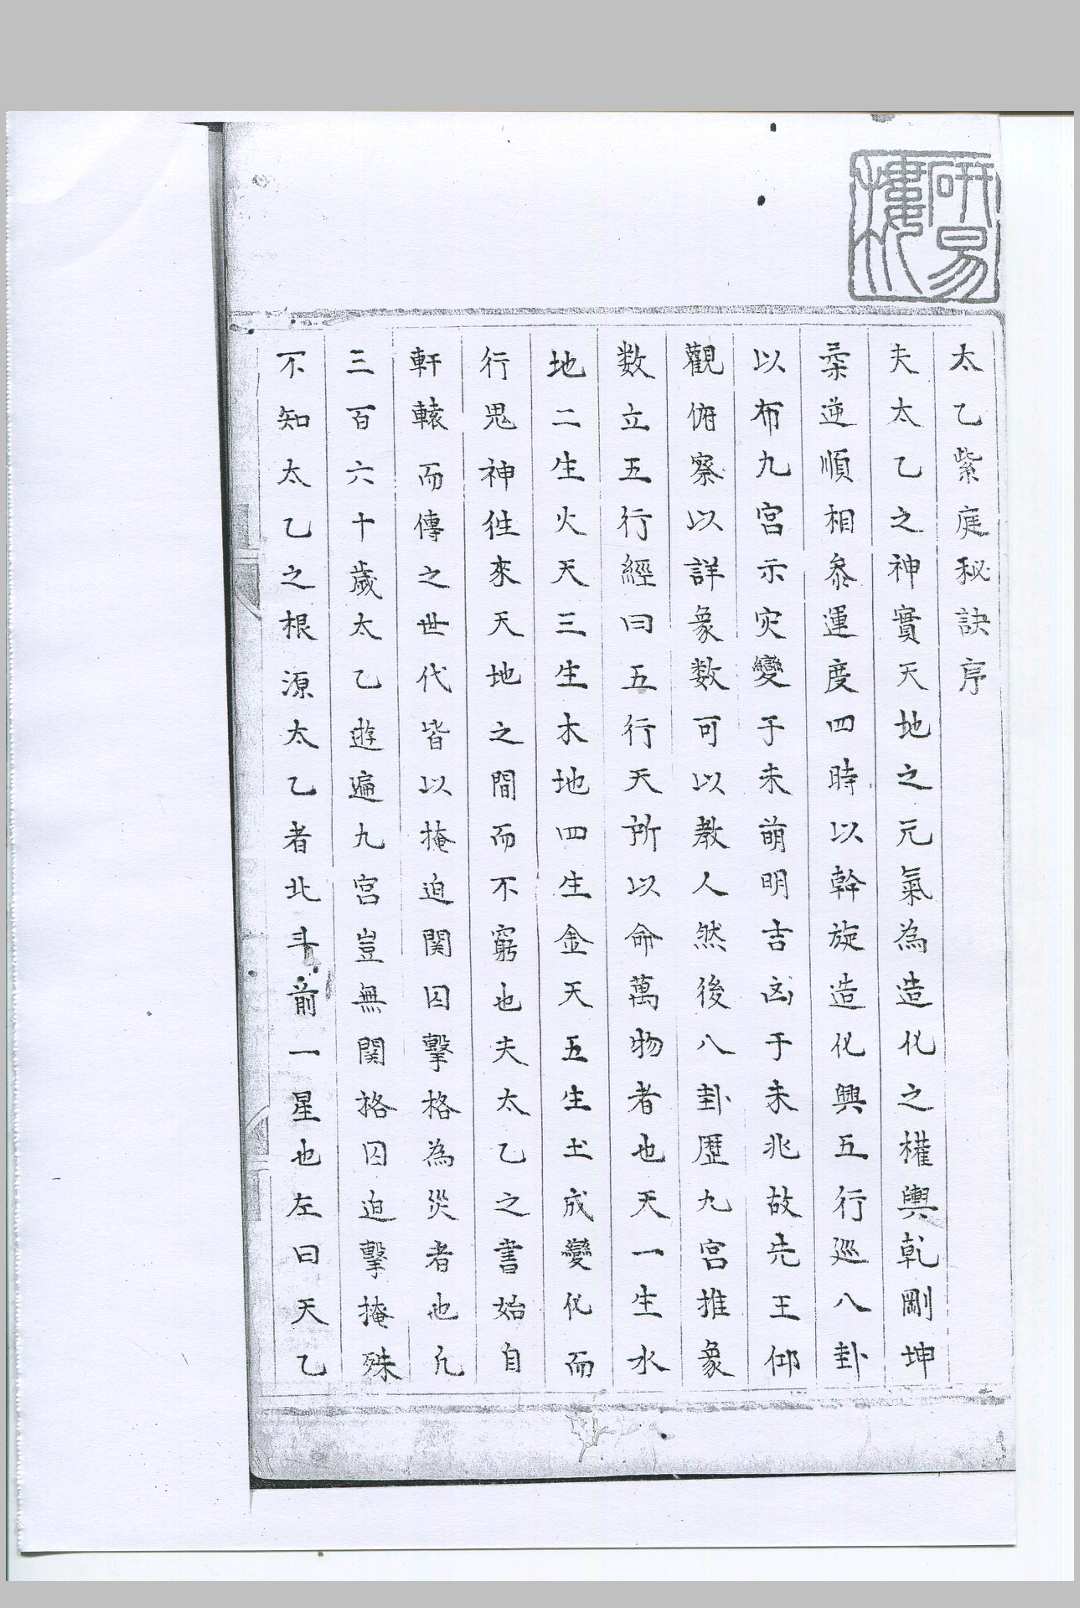 太乙紫庭秘訣序
夫太乙之神實天地之元氣為造化之權輿乾剛坤
柔逆順相叅運度四時以幹旋造化興五行廵八卦
以布九宮示灾變于未萌明吉凶于未兆故先王仰
觀俯察以詳象数可以教人然後八卦歷九宮推象
数立五行經曰五行天所以命萬物者也天一生水
地二生火天三生木地四生金天五生土成變化而
行鬼神徃來天地之間而不窮也夫太乙之書始自
軒轅而傳之世代皆以掩迫関囚擊格為災者也凡
三百六十歲太乙遊遍九宮豈無関格囚迫擊掩殊
不知太乙之根源太乙者北斗前一星也左曰天乙
研易
樓